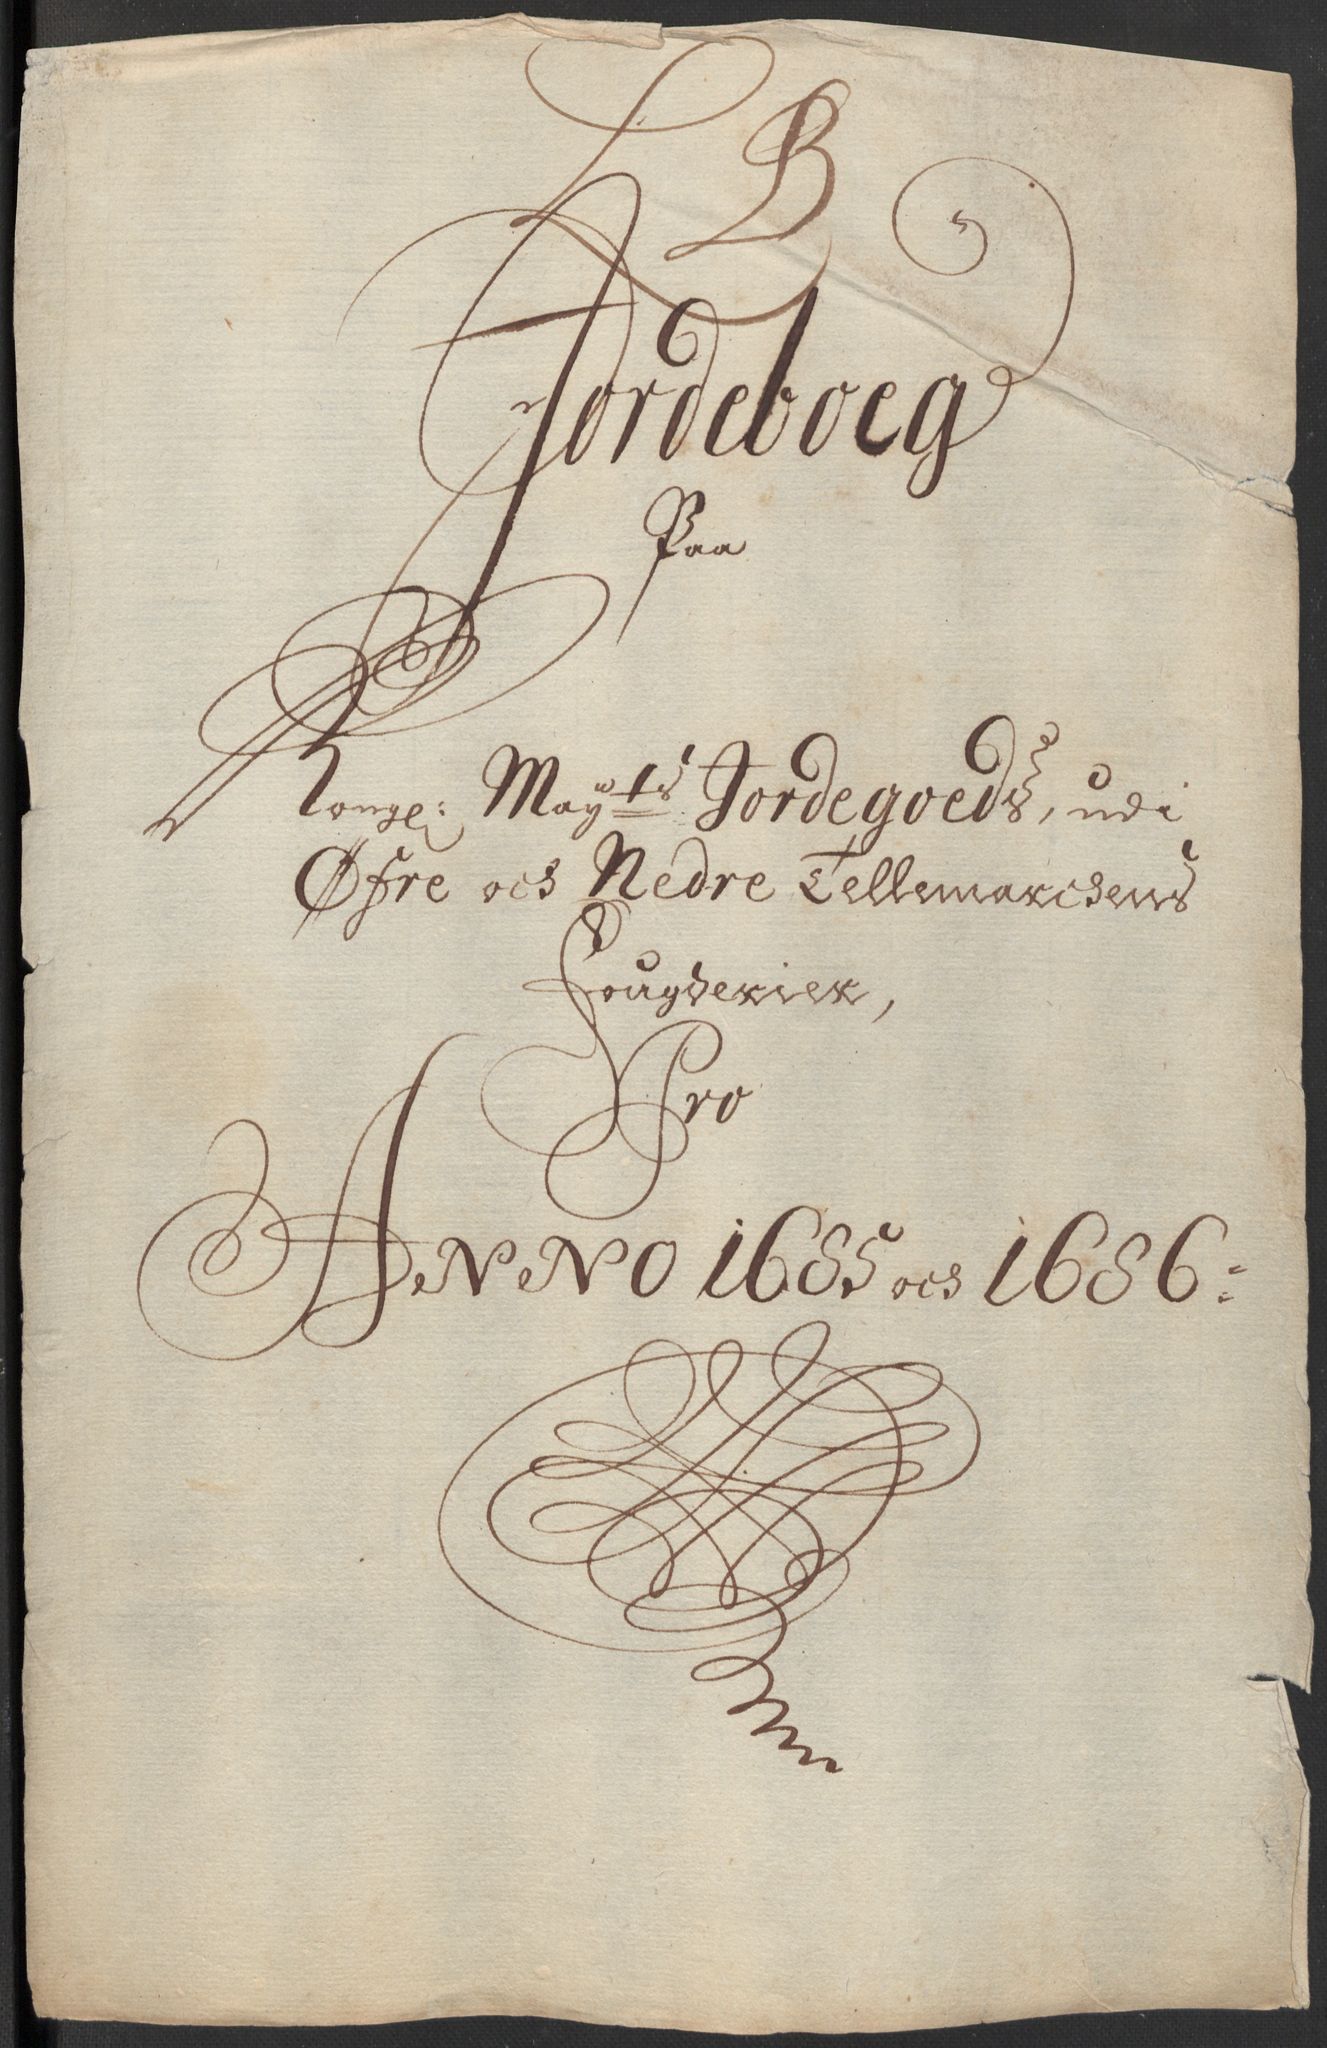 LB
Jordeboeg
Paa
Kongl: Mayts Jordegoeds, udi
Øfre och Nedre Tellemarchens
Fougderier,
Pro
ANNO 1685 och 1686: